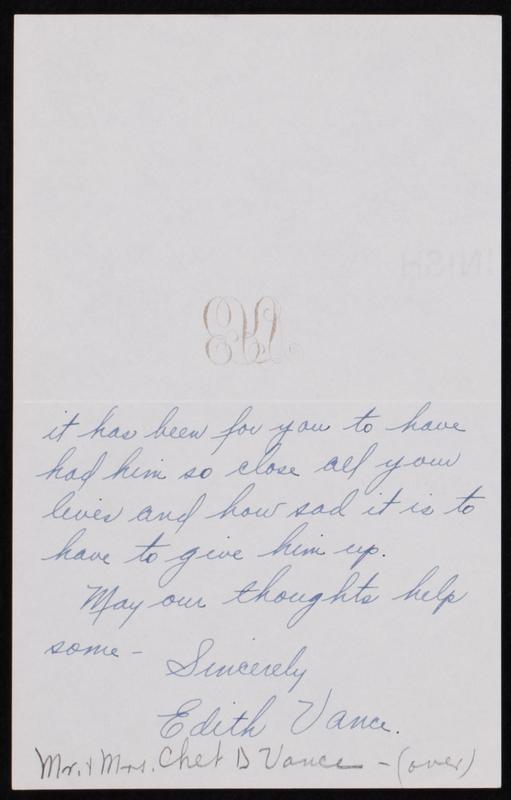 it has been for you to have
had him so close all your
lives and how sad it is to
have to give him up.
May our thoughts help
some -
Sincerely
Edith Vance.
Mr. & Mrs. Chet D Vance - (over)